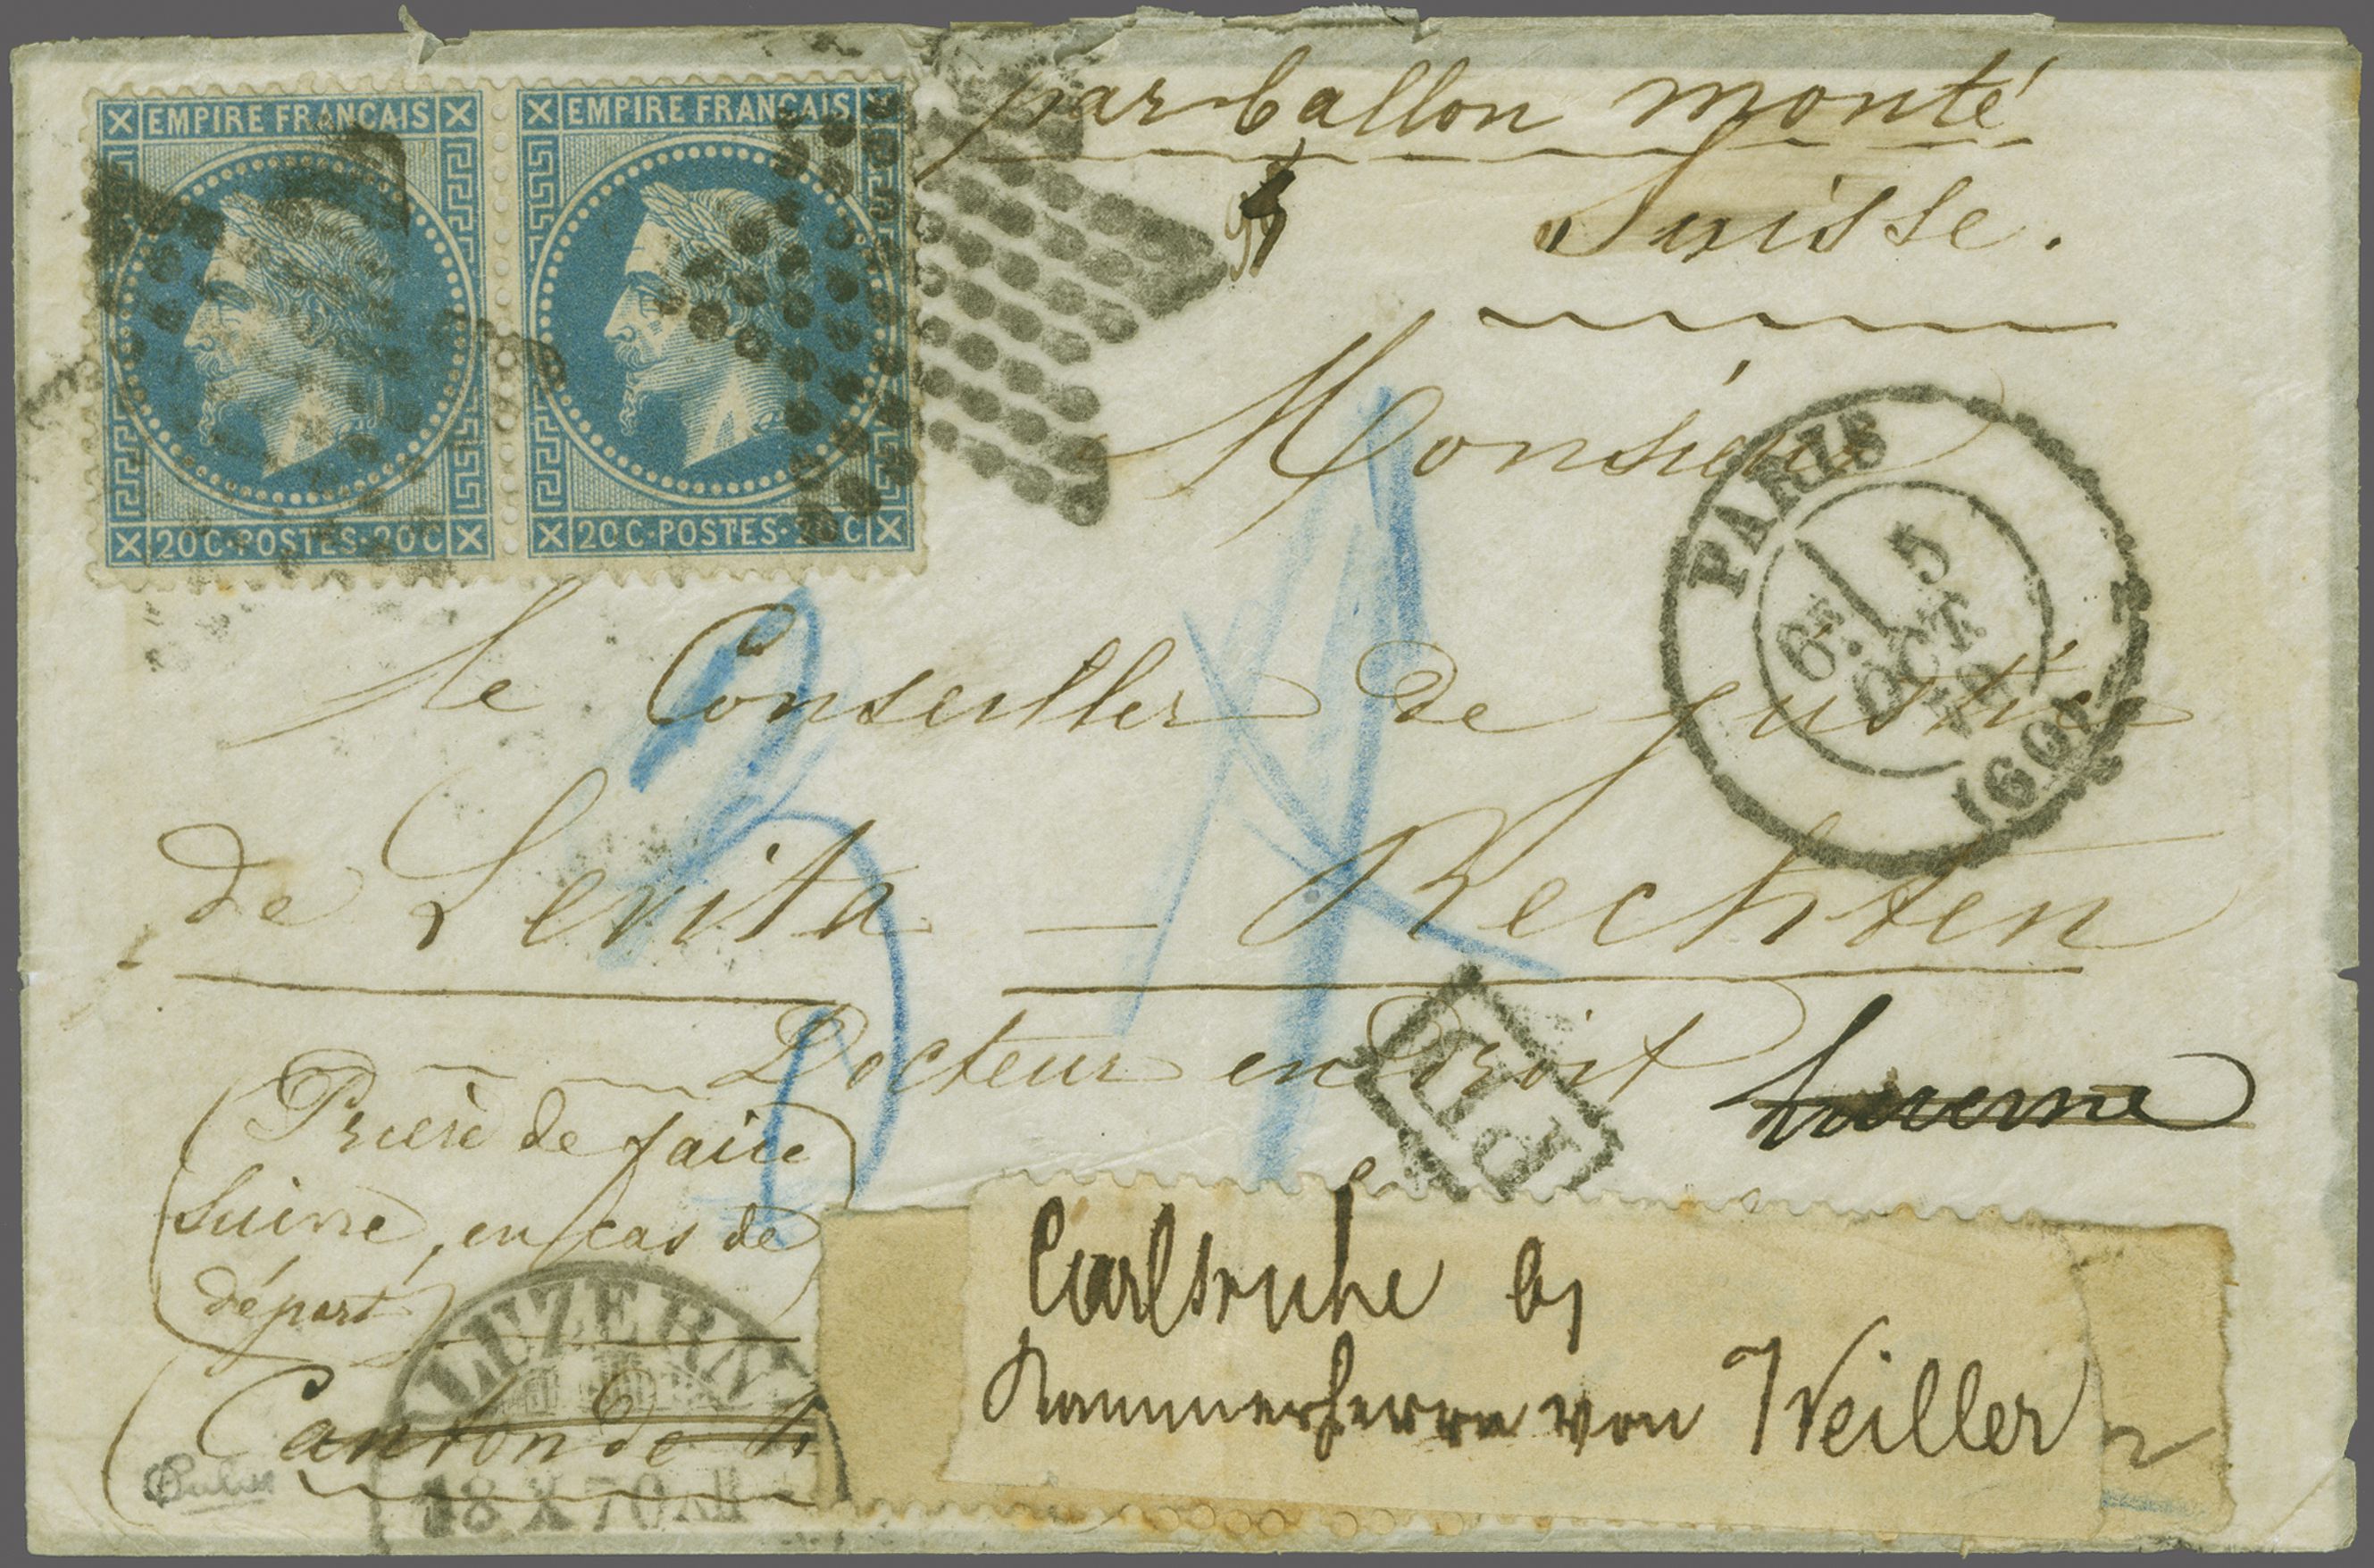 EMPIRE FRANCAIS
20C·POSTES·20C
EMPIRE FRANCAIS
20C·POSTES·20C
par ballon monté
Suisse.
Monsieur
PARIS
6E 5
OCT
70
(60)
le Conseiller de justice
de Levita — Rechten
Docteur en Droit
PD
Lucerne
(Prière de faire
suivre, en cas de
départ)
Canton de
LUZERN
18 X 70
Carlsruhe by
Kammerherrn von Weiller